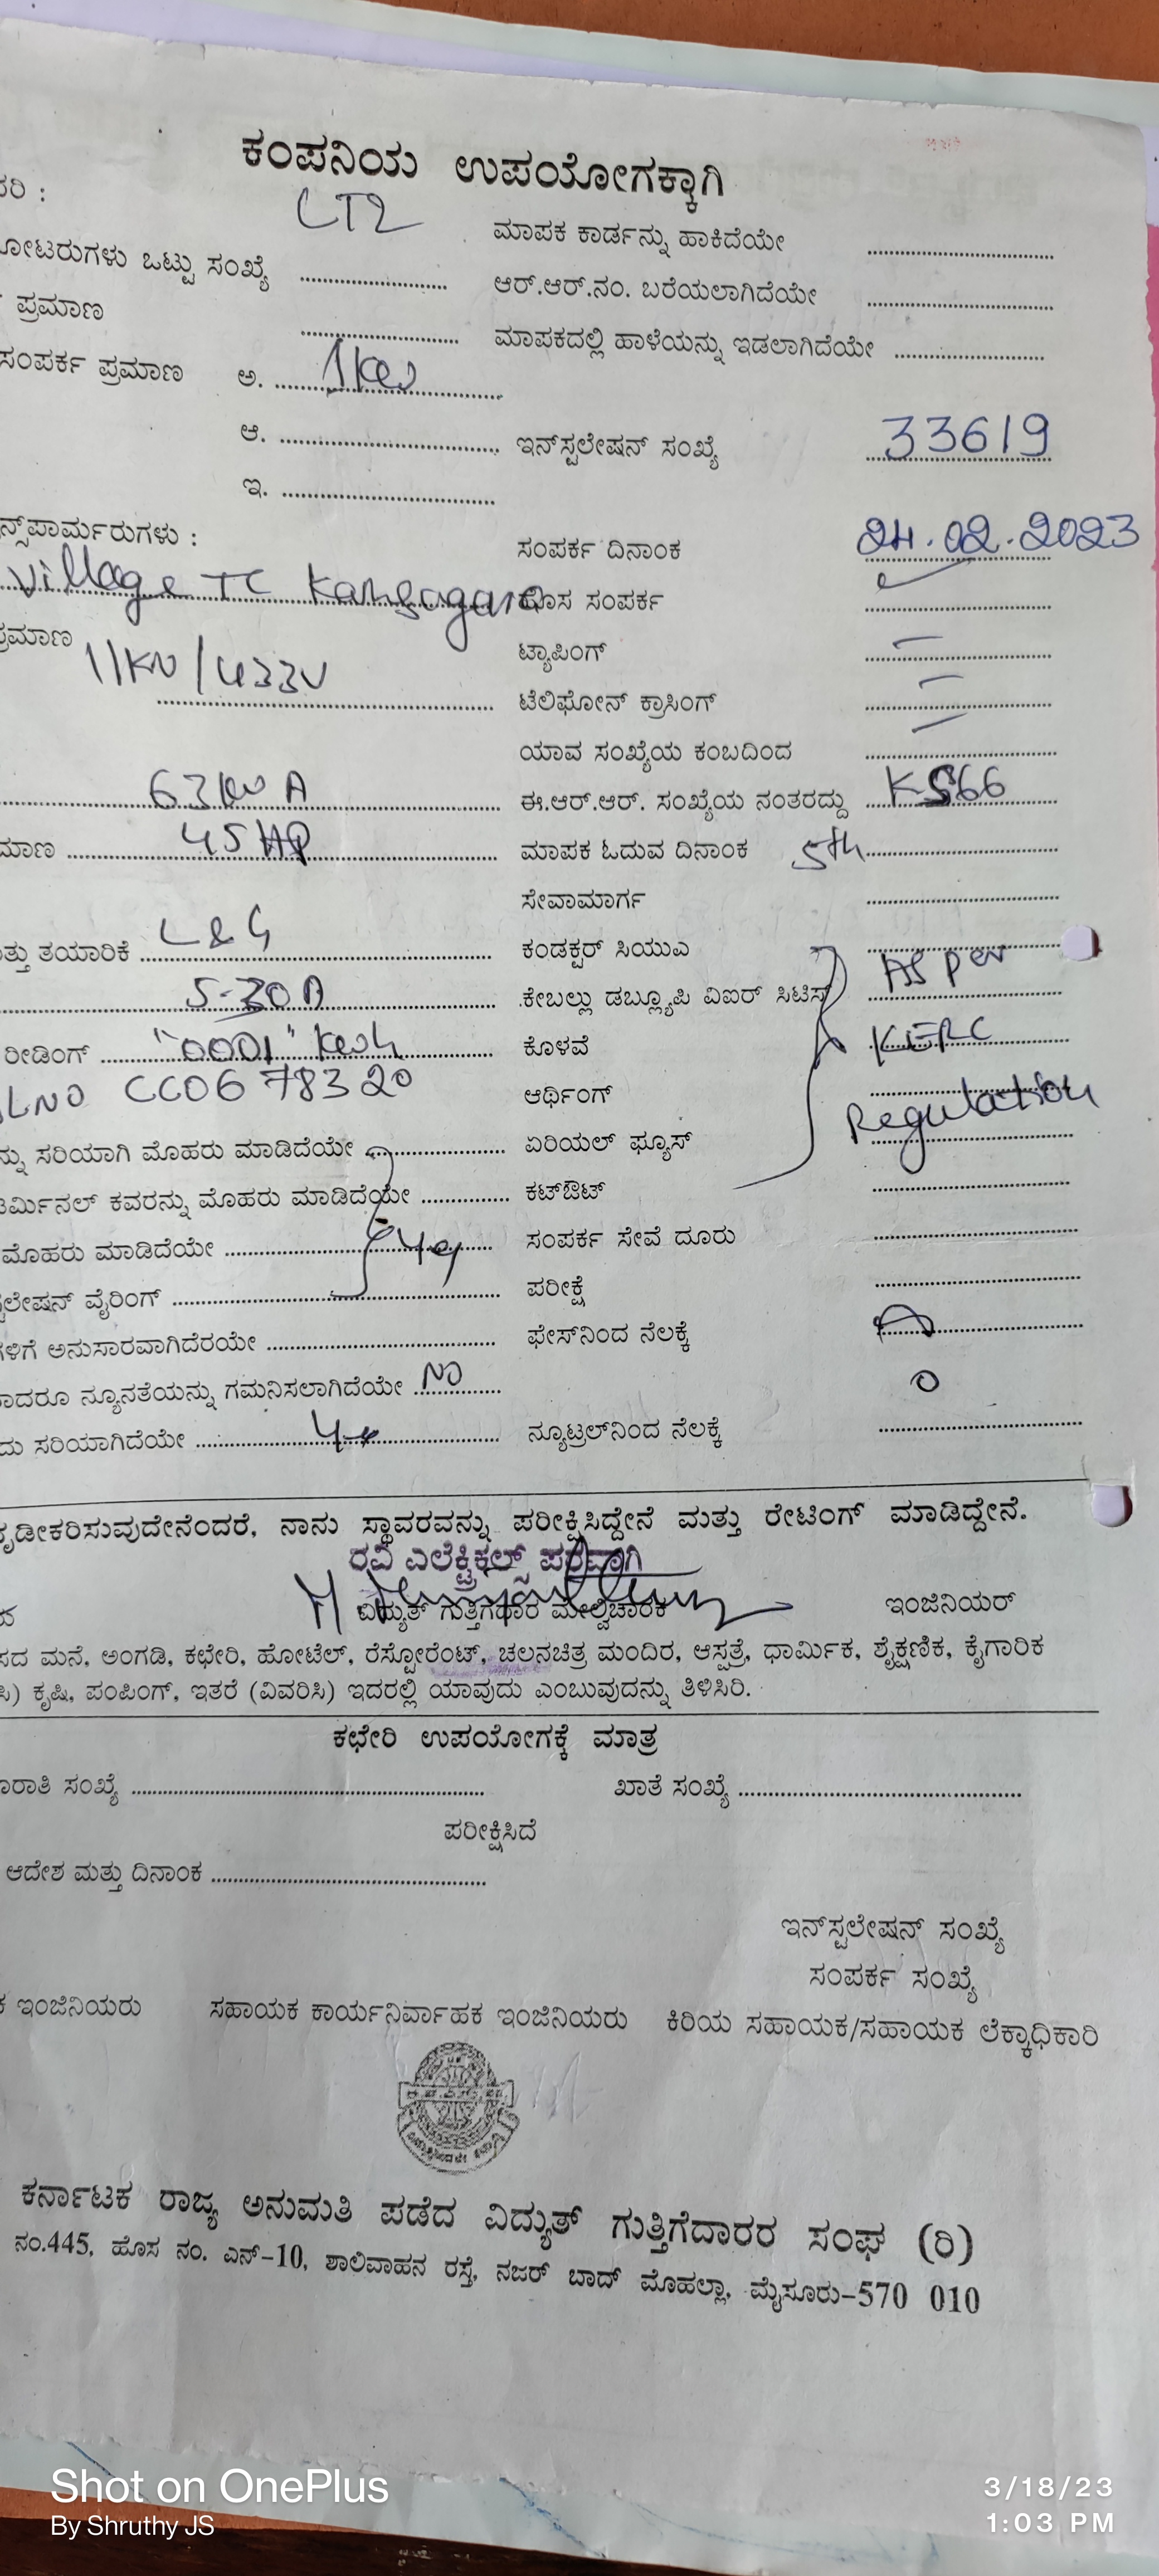 ಕಂಪನಿಯ ಉಪಯೋಗಕ್ಕಾಗಿ
LT2 ಮಾಪಕ ಕಾರ್ಡನ್ನು ಹಾಕಿದೆಯೇ
ಒಟ್ಟು ಸಂಖ್ಯೆ ಆರ್.ಆರ್.ನಂ. ಬರೆಯಲಾಗಿದೆಯೇ
ಪ್ರಮಾಣ ಮಾಪಕದಲ್ಲಿ ಹಾಳೆಯನ್ನು ಇಡಲಾಗಿದೆಯೇ
ಸಂಪರ್ಕ ಪ್ರಮಾಣ ಅ. 1 kw
ಆ. ಇನ್‌ಸ್ಟಲೇಷನ್ ಸಂಖ್ಯೆ 33619
ಇ.
ಸಂಪರ್ಕ ದಿನಾಂಕ 24.02.2023
Village TC ಹೊಸ ಸಂಪರ್ಕ
11KV/433V ಟ್ಯಾಪಿಂಗ್
ಟೆಲಿಫೋನ್ ಕ್ರಾಸಿಂಗ್
ಯಾವ ಸಂಖ್ಯೆಯ ಕಂಬದಿಂದ
ಈ.ಆರ್.ಆರ್. ಸಂಖ್ಯೆಯ ನಂತರದ್ದು
45 HP ಮಾಪಕ ಓದುವ ದಿನಾಂಕ 5th
ಸೇವಾಮಾರ್ಗ
ತಯಾರಿಕೆ L&G ಕಂಡಕ್ಟರ್ ಸಿಯುಎ As per
5-30A ಕೇಬಲ್ಲು ಡಬ್ಲ್ಯೂಪಿ ವಿಐರ್ ಸಿಟಿಸ್
ರೀಡಿಂಗ್ "0001" kwh ಕೊಳವೆ KERC
CC0678320 ಆರ್ಥಿಂಗ್ Regulation
ಸರಿಯಾಗಿ ಮೊಹರು ಮಾಡಿದೆಯೇ ಏರಿಯಲ್ ಫ್ಯೂಸ್
ಕವರನ್ನು ಮೊಹರು ಮಾಡಿದೆಯೇ ಕಟ್‌ಔಟ್
ಮೊಹರು ಮಾಡಿದೆಯೇ ಸಂಪರ್ಕ ಸೇವೆ ದೂರು
ವೈರಿಂಗ್ ಪರೀಕ್ಷೆ
ಅನುಸಾರವಾಗಿದೆರಯೇ ಫೇಸ್‌ನಿಂದ ನೆಲಕ್ಕೆ
ನ್ಯೂನತೆಯನ್ನು ಗಮನಿಸಲಾಗಿದೆಯೇ NO 0
ಸರಿಯಾಗಿದೆಯೇ ನ್ಯೂಟ್ರಲ್‌ನಿಂದ ನೆಲಕ್ಕೆ
ನಾನು ಸ್ಥಾವರವನ್ನು ಪರೀಕ್ಷಿಸಿದ್ದೇನೆ ಮತ್ತು ರೇಟಿಂಗ್ ಮಾಡಿದ್ದೇನೆ.
ರವಿ ಎಲೆಕ್ಟ್ರಿಕಲ್ಸ್ ಪರವಾಗಿ
ವಿದ್ಯುತ್ ಗುತ್ತಿಗೆದಾರ ಮೇಲ್ವಿಚಾರಕ ಇಂಜಿನಿಯರ್
ಮನೆ, ಅಂಗಡಿ, ಕಛೇರಿ, ಹೋಟೆಲ್, ರೆಸ್ಟೋರೆಂಟ್, ಚಲನಚಿತ್ರ ಮಂದಿರ, ಆಸ್ಪತ್ರೆ, ಧಾರ್ಮಿಕ, ಶೈಕ್ಷಣಿಕ, ಕೈಗಾರಿಕ
ಕೃಷಿ, ಪಂಪಿಂಗ್, ಇತರೆ (ವಿವರಿಸಿ) ಇದರಲ್ಲಿ ಯಾವುದು ಎಂಬುವುದನ್ನು ತಿಳಿಸಿರಿ.
ಕಛೇರಿ ಉಪಯೋಗಕ್ಕೆ ಮಾತ್ರ
ಸಂಖ್ಯೆ ಖಾತೆ ಸಂಖ್ಯೆ
ಪರೀಕ್ಷಿಸಿದೆ
ಆದೇಶ ಮತ್ತು ದಿನಾಂಕ
ಇನ್‌ಸ್ಟಲೇಷನ್ ಸಂಖ್ಯೆ
ಸಂಪರ್ಕ ಸಂಖ್ಯೆ
ಇಂಜಿನಿಯರು ಸಹಾಯಕ ಕಾರ್ಯನಿರ್ವಾಹಕ ಇಂಜಿನಿಯರು ಕಿರಿಯ ಸಹಾಯಕ/ಸಹಾಯಕ ಲೆಕ್ಕಾಧಿಕಾರಿ
ಕರ್ನಾಟಕ ರಾಜ್ಯ ಅನುಮತಿ ಪಡೆದ ವಿದ್ಯುತ್ ಗುತ್ತಿಗೆದಾರರ ಸಂಘ (ರಿ)
ನಂ.445, ಹೊಸ ನಂ. ಎನ್-10, ಶಾಲಿವಾಹನ ರಸ್ತೆ, ನಜರ್ ಬಾದ್ ಮೊಹಲ್ಲಾ, ಮೈಸೂರು-570 010
Shot on OnePlus
By Shruthy JS
3/18/23
1:03 PM